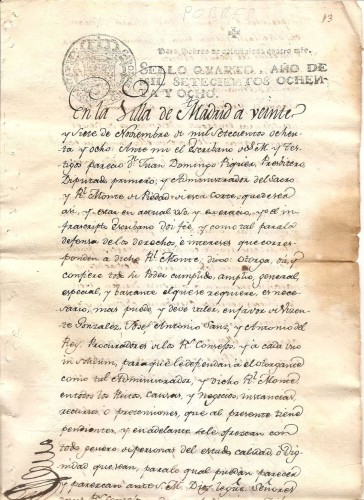 POBRES
13
Para Pobres de solemnidad quatro mrs.
SELLO QUARTO, AÑO DE
MIL SETECIENTOS OCHEN-
TA Y OCHO.
En la Villa de Madrid à veinte
y siete de Noviembre de mil setecientos ochen
ta y ocho: Ante mi el Escribano de S. M. y Tes
tigos parecio Dn. Juan Domingo Piquer Presbitero
Diputado primero, y Administrador del Sacro
y Rl. Monte de Piedad de esta Corte, que de ser
asi, y estar en actual uso y exercicio, yo el in
frascripto Escribano doi fee, y como tal para la
defensa de los derechos, e intereses que corres
ponden à dicho Rl. Monte, dixo: Otorga, da, y
confiere todo su Poder cumplido, amplio, general,
especial, y bastante el que se requiere, es nece
sario, mas puede, y deve valer, en favor de Vicen
te Gonzalez, Josef Antonio Sanz, y Antonio del
Rey, Procuradores de los Rs. Consejos, y à cada uno
in solidum, para que le defiendan à el otorgante
como tal Administrador, y dicho Rl. Monte
en todos los Pleitos, causas, y negocios, instancias,
recursos, o pretensiones, que al presente tiene
pendientes, y en adelante se le ofrezcan con
todo genero de personas del estado calidad o Dig
nidad que sean, para lo qual puedan parecer
y parezcan ante S. M. Dios le gue. Señores